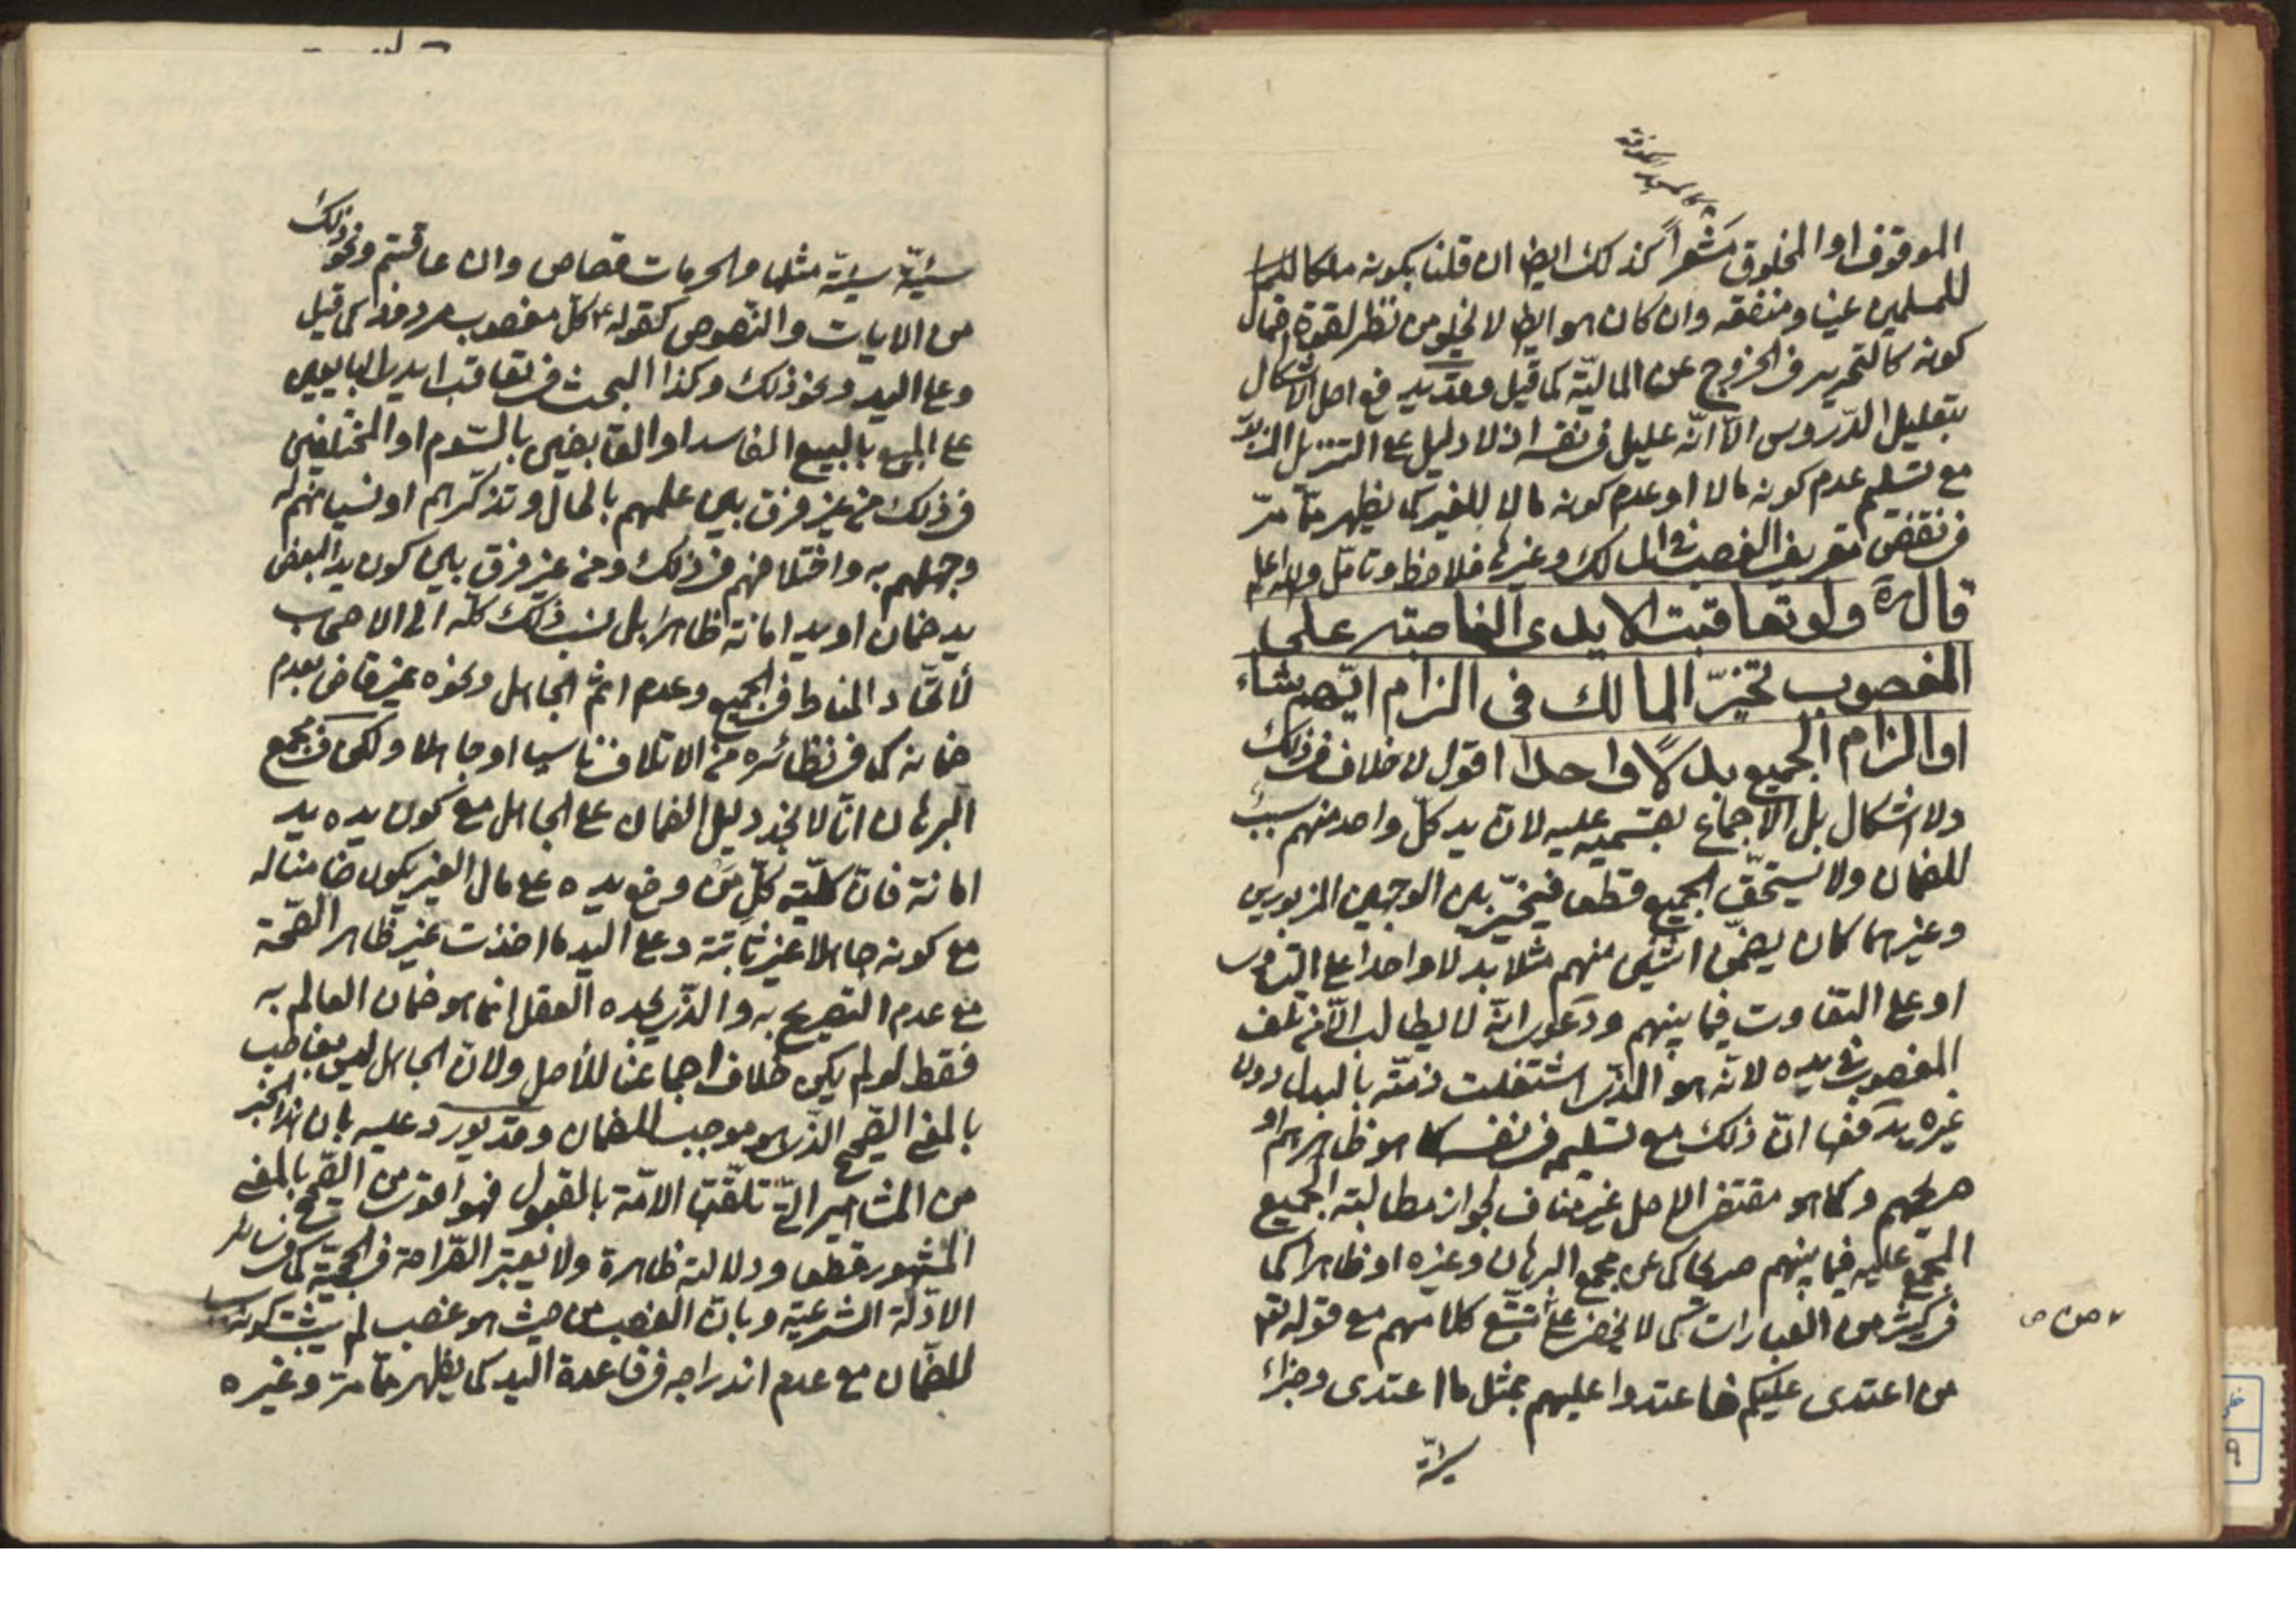 الموقوف او المخلوق مشعرا كذلك ايضا ان قلنا بكونه ملكا
للمسلمين عينا ومنفعة وان كان هو ايضا لا يخلو من نظر لقوة احتمال
كونه كالتحرير في الخروج عن المالية كما قيل وقد يدفع اصل الاشكال
بتعليل الدروس الا انه عليل في نفسه اذ لا دليل على التنزيل
مع تسليم عدم كونه مالا او عدم كونه مالا للغير كما يظهر مما مر
في نقض تعريف الغصب في المالك وغيرها فلاحظ وتامل والله اعلم
قال ره ولو تعاقبت الايدى الغاصبة على
المغصوب تخير المالك فى الزام ايهم شاء
او الزام الجميع بدلا واحدا اقول لا خلاف في ذلك
ولا اشكال بل الاجماع بقسميه عليه لان يد كل واحد منهم سبب
للضمان ولا يستحق الجميع قطعا فيتخير بين الوجهين المزبورين
وغيرهما كان يضمن اثنين منهم مثلا بدلا واحدا على التساوى
او على التفاوت فيما بينهم ودعوى انه لا يطالب الا من تلف
المغصوب في يده لانه هو الذى اشتغلت ذمته بالبدل دون
غيره يدفعها ان ذلك مع تسليمه في نفسه كما هو ظاهرهم او
صريحهم وكما هو مقتضى الاصل غير مناف لجواز مطالبته الجميع
المجمع عليه فيما بينهم صريحا كما عن مجمع البرهان وغيره او ظاهرا كما
في كثير من العبارات كما لا يخفى على من تتبع كلامهم مع قوله تع
من اعتدى عليكم فاعتدوا عليهم بمثل ما اعتدى وجزاء
سيئة
سيئة سيئة مثلها والحرمات قصاص وان عاقبتم ونحو ذلك
من الايات والنصوص كقوله ع كل مغصوب مردود كما قيل
وعلى اليد ونحو ذلك وكذا البحث في تعاقب ايدى البايعين
على المبيع بالبيع الفاسد او القابضين بالسوم او المختلفين
في ذلك من غير فرق بين علمهم بالحال وتذكرهم او نسيانهم له
وجهلهم به واختلافهم في ذلك ومن غير فرق بين كون يد البعض
يد ضمان او يد امانة ظاهرا بل نسب ذلك كله الى الاصحاب
لاتحاد المناط في الجميع وعدم اثم الجاهل ونحوه غير قاض بعدم
ضمانه كما في نظائره من الاتلاف ناسيا او جاهلا ولكن في مجمع
البرهان انا لا نجد دليل الضمان على الجاهل مع كون يده يد
امانة فان كلية كل من وضع يده على مال الغير يكون ضامنا له
مع كونه جاهلا غير ثابتة وعلى اليد ما اخذت غير ظاهر الصحة
مع عدم التصريح به والذى يجده العقل انما هو ضمان العالم به
فقط لو لم يكن خلاف اجماعنا للأصل ولان الجاهل ليس بغاصب
بالمعنى الصحيح الذى هو موجب للضمان وقد يورد عليه بان هذا الخبر
من المشاهير التى تلقتها الامة بالقبول فهو اقوى من الصحيح بالمعنى
المشهور قطعا ودلالته ظاهرة ولا يعتبر الصراحة في الحجية كما في ساير
الادلة الشرعية وبان الغصب من حيث هو غصب لم يثبت كونه سببا
للضمان مع عدم اندراجه في قاعدة اليد كما يظهر مما مر وغيره